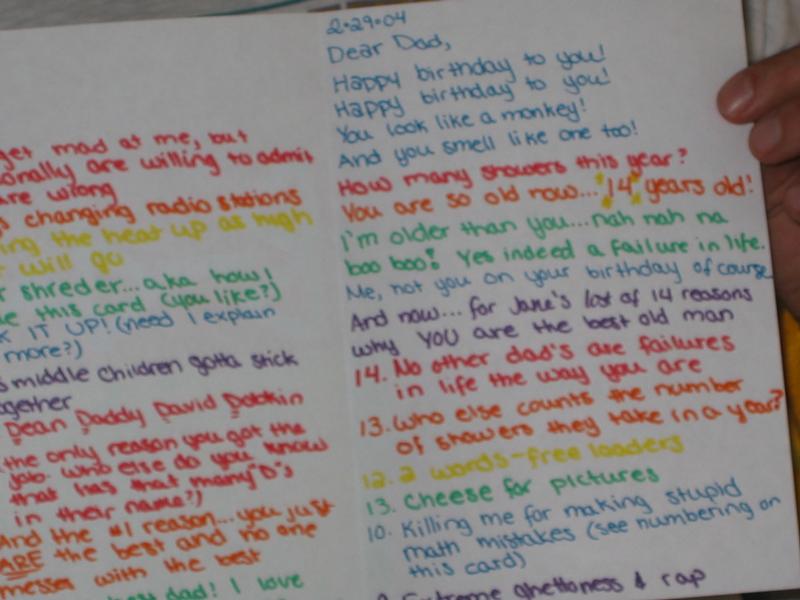 2·29·04
Dear Dad,
Happy birthday to you!
Happy birthday to you!
You look like a monkey!
And you smell like one too!
How many showers this year?
You are so old now... "14" years old!
I'm older than you...nah nah na
boo boo! Yes indeed a failure in life.
Me, not you on your birthday of course
And now... for Jane's list of 14 reasons
why YOU are the best old man
14. No other dad's are failures
in life the way you are
13. Who else counts the number
of showers they take in a year?
12. 2 words-free loaders
13. Cheese for pictures
10. Killing me for making stupid
math mistakes (see numbering on
this card)
Extreme ghettoness & rap
get mad at me, but
are willing to admit
are wrong
changing radio stations
ing the heat up as high
will go
shreder...aka how!
this card (you like?)
IT UP! (need I explain
more?)
middle children gotta stick
ogether
Dean Daddy David Dotkin
the only reason you got the
job. Who else do you know
that has that many "D"s
in their name?)
And the #1 reason...you just
ARE the best and no one
messes with the best
dad! I love